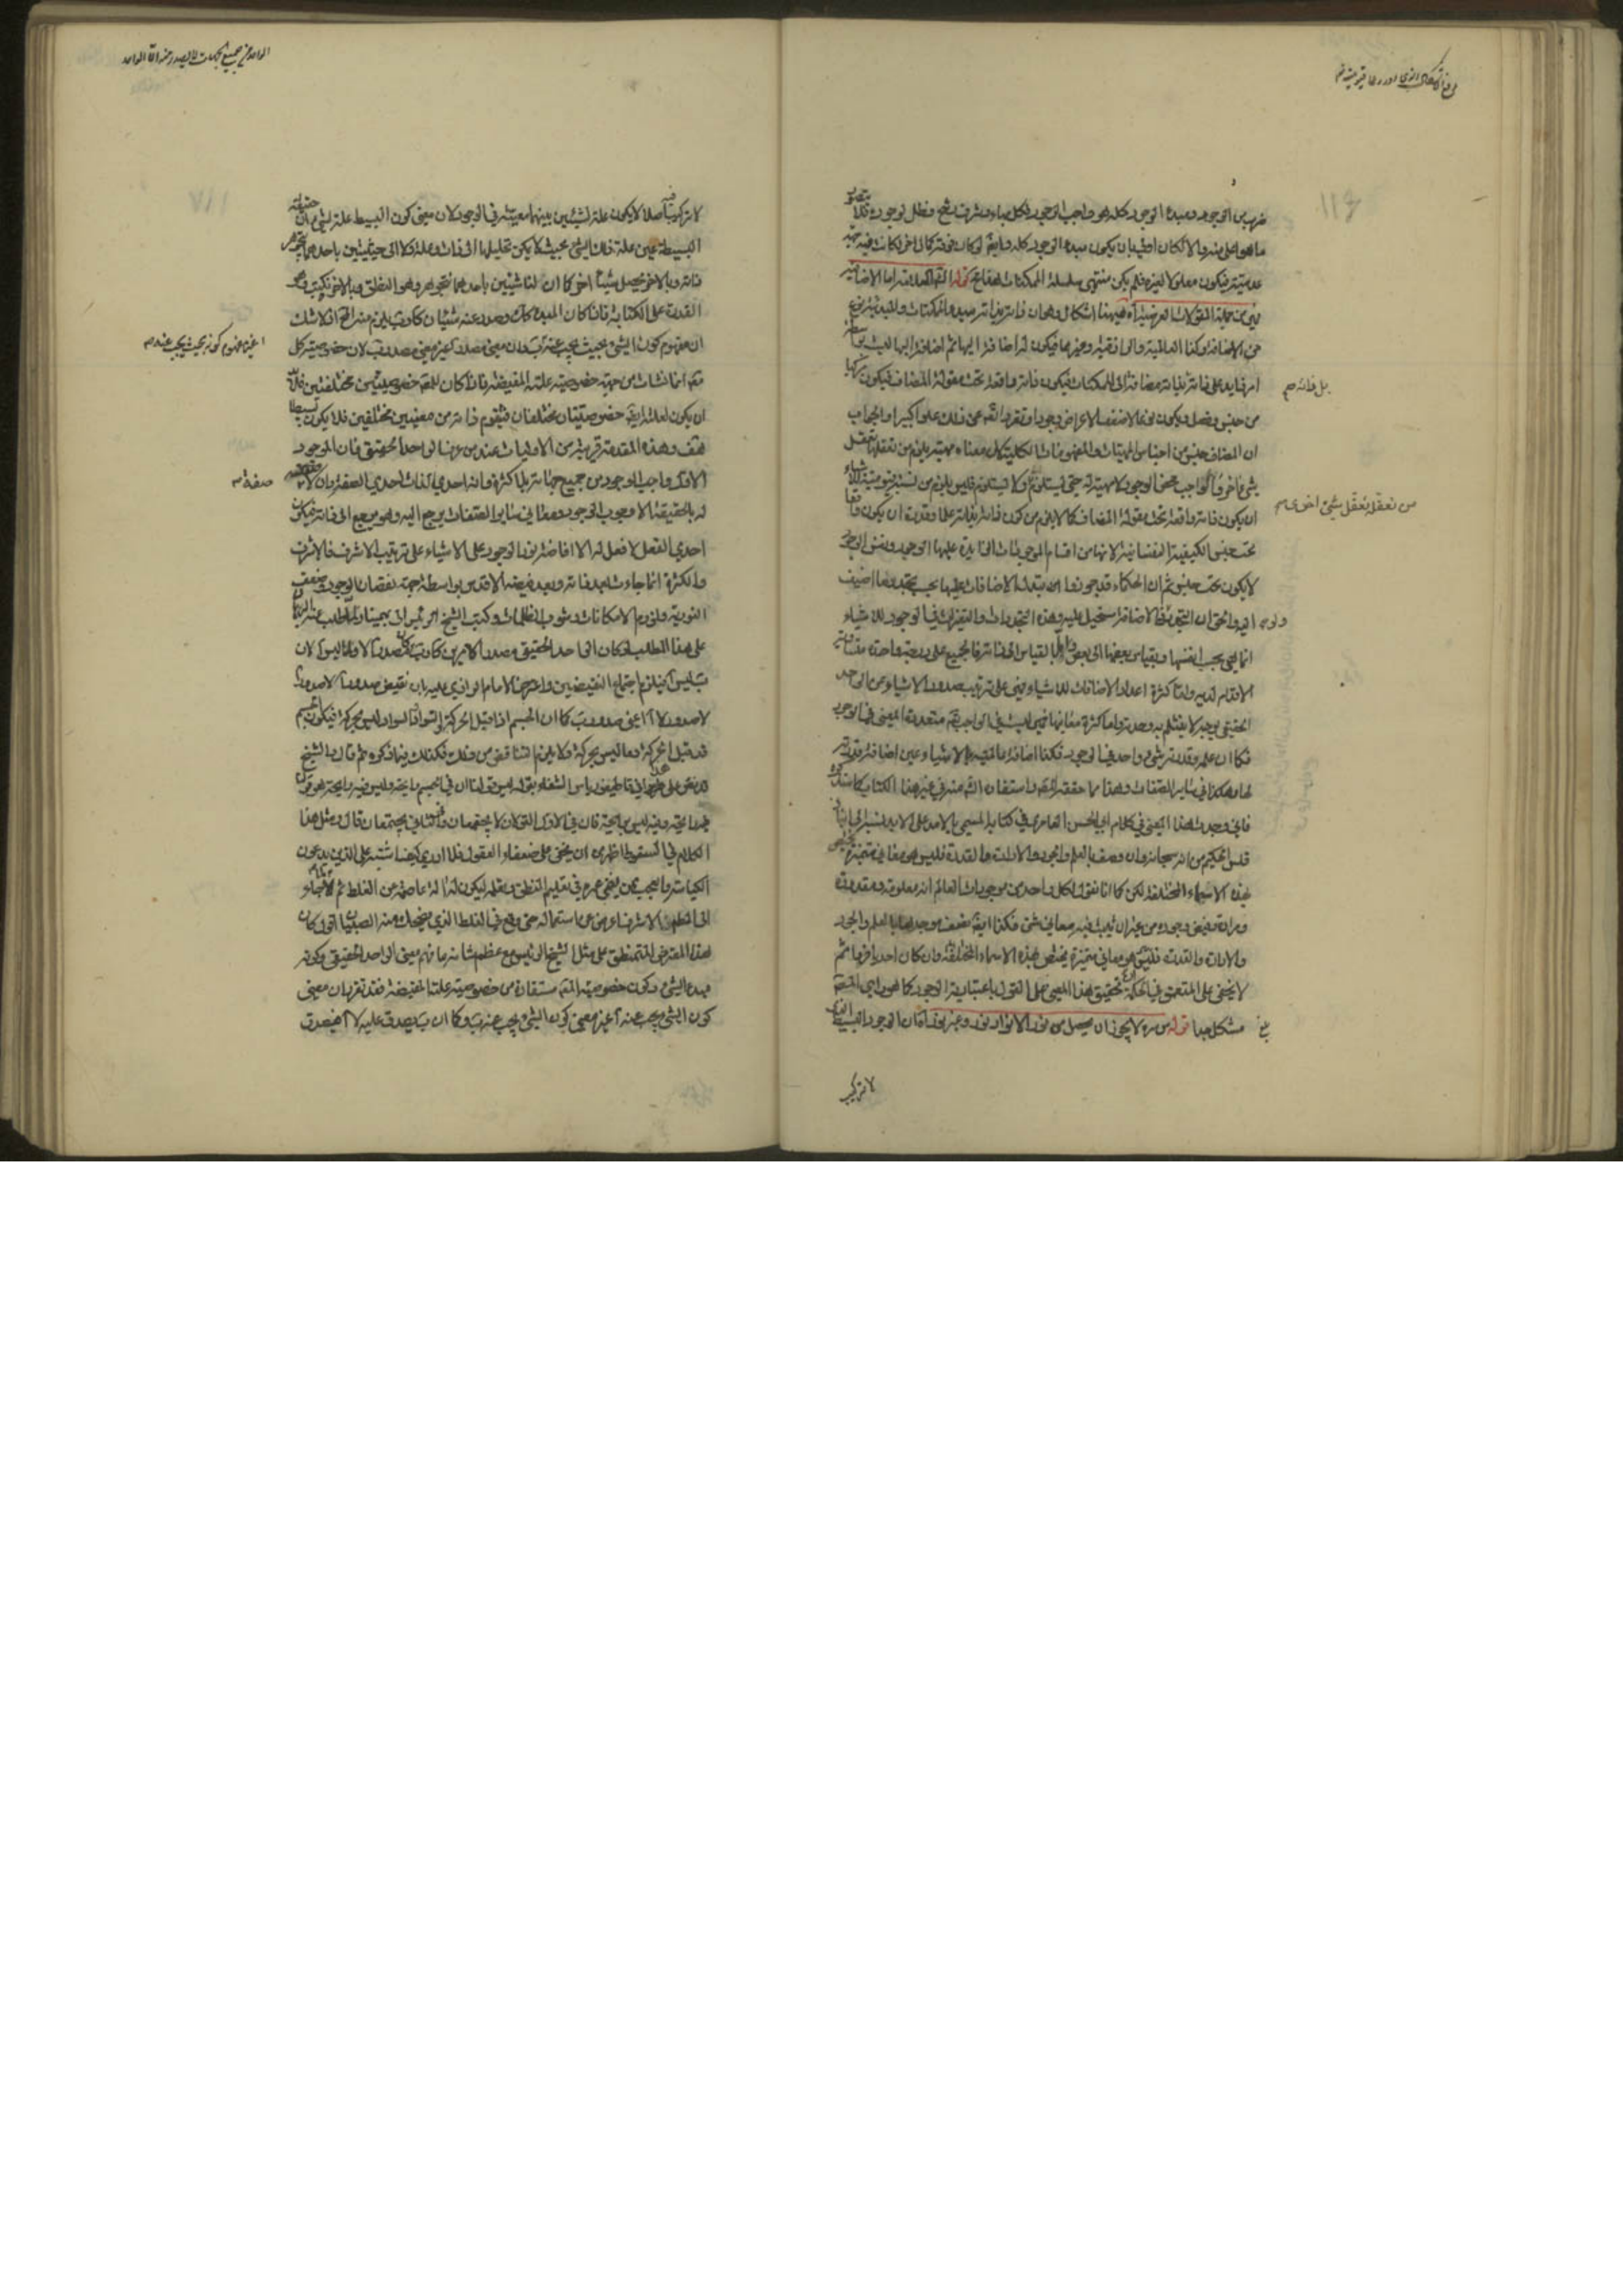 ضرب من الوجود ومبدء الوجود كله هو واجب الوجود
ما هو اعلى منه والا لكان اولى بان يكون مبدء الوجود كله وايضا لو كان فوقه كمال اخر لكانت فيه جهة
عدمية فيكون معلولا لغيره فلم يكن منتهى سلسلة الممكنات قوله اما الاضافة
فهيهنا اشكال وهو ان ذاته بذاته مبدء الممكنات والمبدئية نوع
من الاضافة وكذا العالمية والرازقية وغيرهما فيكون له اضافة اليها ثم اضافة اليها ليست بواسطة
امر زايد على ذاته بل ذاته بذاته مضافة الى الممكنات فيكون ذاته واقعة تحت مقولة المضاف فيكون مركبا
بل ذاته صح
من جنس وفصل ويكون نوعا لاضعف الاعراض وجودا وتقررا تع عن ذلك علوا كبيرا والجواب
ان المضاف جنس من اجناس المهيات والمفهومات الكلية وكل معناه مهية يلزم من تعقلها تعقل
شئ اخر والواجب محض الوجود لا مهية له حتى يستلزم او لا يستلزم فليس يلزم من نسبة قيوميته للاشياء
من تعقله تعقل شئ اخر صح
ان يكون ذاته واقعة تحت مقولة المضاف كما لا يلزم من كون ذاته بذاته علما وقدرة ان يكون واقعا
تحت جنس الكيفية النفسانية لانها من اقسام الموجودات الزايدة عليها الوجود ونفس الوجود
لا يكون تحت جنس ثم ان الحكماء قد جوزوا تبدل الاضافات عليها بحسب تجدد ما اضيف
اليه والحق ان التجدد في الاضافة مستحيل عليه وهذه التجددات والتغيرات في الوجود للاشياء
انما هي بحسب انفسها وبقياس بعضها الى بعض واما بالقياس الى ذاته فالجميع على درجة واحدة متساوية
الاقدام لديه واما كثرة اعداد الاضافات للاشياء فهي على ترتيب صدور الاشياء عن الواحد
الحقيقي بوجه لا ينثلم به وحدته واما كثرة معانيها فهي ليست في الواجب تع متعددة المعنى في الوجود
فكما ان علمه وقدرته شئ واحد في الوجود فكذا اضافة عالميته بالاشياء عين اضافة قدرته
لها وهكذا في ساير الصفات وهذا مما حققه الشيخ واستفدناه منه في غير هذا الكتاب كما ستذكره
فاني وجدت هذا المعنى في كلام ابي الحسن العامري في كتابه المسمى بالامد على الابد
الحكيم من انه سبحانه وان وصف بالعلم والجود والارادة والقدرة فليس هو معاني متميزة تختص
بهذه الاسماء المختلفة لكن كما انا نقول لكل واحد من موجودات العالم انه معلومه ومقدوره
ومراده وفيض جوده من غير ان نثبت فيه معاني شتى فكذا ايضا نصف موجدها بالعلم والجود
والارادة والقدرة فليس هو معاني متميزة تختص بهذه الاسماء المختلفة وان كان احديا فردا ثم
لا يخفى على المتعمق في الحكمة ان تحقيق هذا المعنى على القول باعتبارية الوجود كما هو راى المص
مشكل جدا قوله س سره لا يجوز ان يحصل من نور الانوار نور وغير نور فان الوجود البسيط الذي
لا تركيب
الواحد من جميع الجهات لا يصدر عنه الا الواحد
لا تركيب فيه اصلا لا يكون علة لشيئين بينهما معية في الوجود لان معنى كون البسيط علة لشئ ان حقيقة
البسيطة عين علة ذلك الشئ بحيث لا يمكن تحليلها الى ذات وعلة ولا الى حيثيتين باحدهما يتجوهر
ذاته وبالاخر يحصل شيئا اخر كما ان لنا شيئين باحدهما نتجوهر وهو النطق وبالاخر نكتب وهو
القدرة على الكتابة فاذا كان المبدء كك وصدر عنه شيئان كاوب يلزم منه ذلك اذ لا شك
ان مفهوم كون الشئ بحيث يجب عنه ب
ا غير مفهوم كونه بحيث يجب عنه صح
ان يكون لعلته ايضا خصوصيتان مختلفان فيتقوم ذاته من معنيين مختلفين فلا يكون بسيطا
هف وهذه المقدمة قريبة من الاوليات عند من عرف الواحد الحقيقي فان الموجود
الاول واجب الوجود من جميع جهاته بلا كثرة فانه احدي الذات احدي الصفة
صفة صح
له بالحقيقة الا وجوب الوجود ومعاني ساير الصفات يرجع اليه وهو يرجع الى ذاته فيكون
احدي الفعل لا فعل له الا افاضة نور الوجود على الاشياء على ترتيب الاشرف فالاشرف
والكثرة انما جاءت بعد ذاته وبعد فيضه الاقدس بواسطة جهة نقصان الوجود وضعف
النورية ولزوم الامكانات وشوب الظلمات وكتب الشيخ الرئيس الى بهمنيار لما طلب عنه البرهان
على هذا المطلب لو كان الواحد الحقيقي مصدرا لامرين كاوب كان مصدرا لا وما ليس ا لان
ب ليس ا فيلزم اجتماع النقيضين واعترض الامام الرازي عليه بان نقيض صدور ا لا صدور ا
لا صدور لا ا اعني صدور ب كما ان الجسم اذا قبل الحركة والسواد والسواد ليس بحركة فيكون الجسم
قد قبل الحركة وما ليس بحركة ولا يلزم التناقض من ذلك فكذلك فيما ذكروه ثم قال والشيخ
قد نص على هذا في قاطيغورياس الشفاء بقوله ليس قولنا ان في الجسم رايحة وليس فيه رايحة هو قولنا
فيه رايحة وفيه ليس برايحة فان في الاول القولان لا يجتمعان وفي الثاني يجتمعان قال ومثل هذا
الكلام في السقوط اظهر من ان يخفى على ضعفاء العقول فلا ادري كيف اشتبه على الذين يدعون
الكياسة والعجب ممن يفني عمره في تعليم المنطق وتعلمه ليكون له الة عاصمة من الغلط ثم لما جاء
الى المطلب الاشرف اعرض عن استعماله حتى وقع في الغلط الذي يضحك منه الصبيان اقول كان
هذا المعترض المتمنطق على مثل الشيخ الرئيس مع عظم شانه ما فهم معنى الواحد الحقيقي وكونه
مبدء الشئ وكون خصوصية المعلول مستفادة من خصوصية علته المفيضة فقد تقرر ان معنى
كون الشئ يجب عنه ا غير معنى كون الشئ يجب عنه ب وكما ان ب يصدق عليه لا ا فيصدق